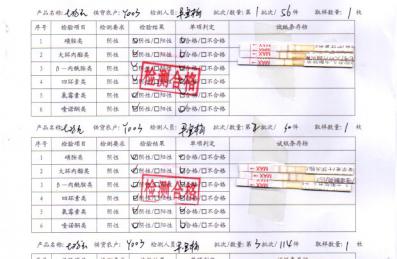 产品名称: 供货农户: Y003 检测人员: 批次/数量: 第1批次/ 56件 取样数量: 1 枚
序号 检验项目 检测要求 检验结果 单项判定 试纸条存档
1 磺胺类 阴性 ☑阴性/□阳性 ☑合格/□不合格
2 大环内酯类 阴性 ☑阴性/□阳性 ☑合格/□不合格
3 β-内酰胺类 阴性 ☑阴性/□阳性 ☑合格/□不合格
4 四环素类 阴性 ☑阴性/□阳性 ☑合格/□不合格
5 氟霉素类 阴性 ☑阴性/□阳性 ☑合格/□不合格
6 喹诺酮类 阴性 ☑阴性/□阳性 ☑合格/□不合格
检测合格
MAX
MAX
产品名称: 供货农户: Y003 检测人员: 批次/数量: 第2批次/ 件 取样数量: 1 枚
序号 检验项目 检测要求 检验结果 单项判定 试纸条存档
1 磺胺类 阴性 ☑阴性/□阳性 ☑合格/□不合格
2 大环内酯类 阴性 ☑阴性/□阳性 ☑合格/□不合格
3 β-内酰胺类 阴性 ☑阴性/□阳性 ☑合格/□不合格
4 四环素类 阴性 ☑阴性/□阳性 ☑合格/□不合格
5 氟霉素类 阴性 ☑阴性/□阳性 ☑合格/□不合格
6 喹诺酮类 阴性 ☑阴性/□阳性 ☑合格/□不合格
检测合格
MAX
MAX
产品名称: 供货农户: Y003 检测人员: 批次/数量: 第3批次/ 114件 取样数量: 1 枚